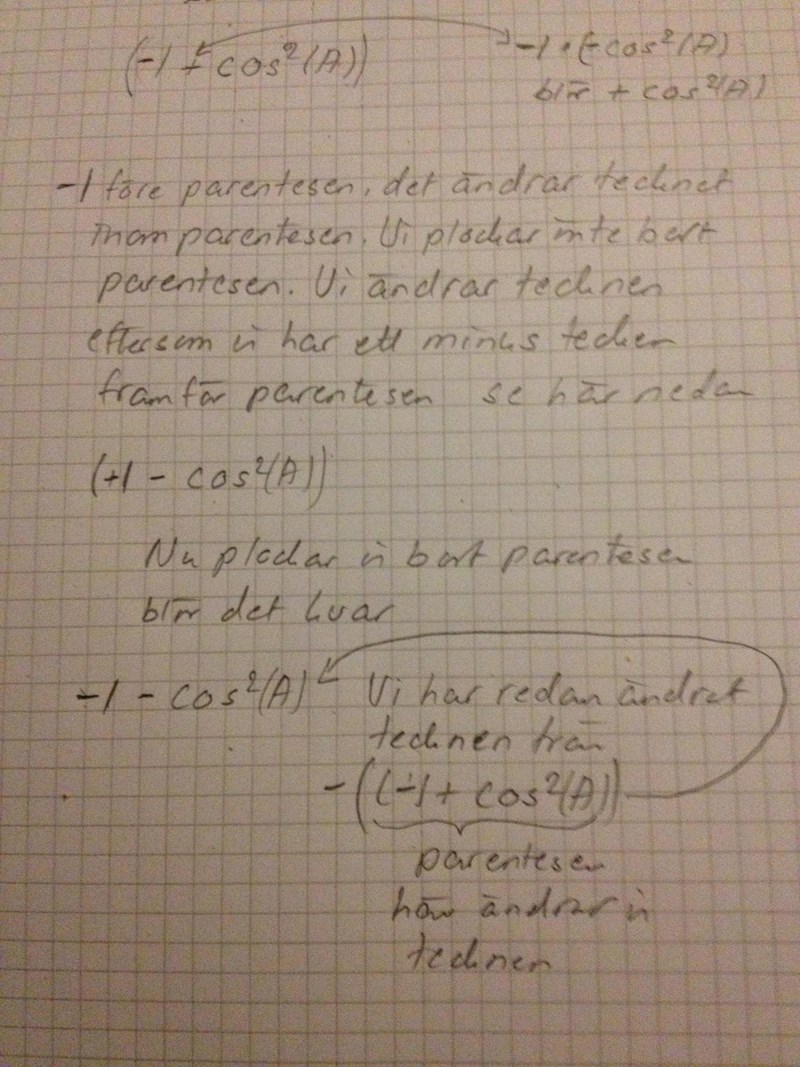 (-1 + cos²(A))
-1 · (-cos²(A)
blir + cos²(A)
-1 före parentesen, det ändrar tecknet
inom parentesen. Vi plockar inte bort
parentesen. Vi ändrar tecknen
eftersom vi har ett minus tecken
framför parentesen se här nedan
(+1 - cos²(A))
Nu plockar vi bort parentesen
blir det kvar
-1 - cos²(A) Vi har redan ändrat
tecknen från
-((-1 + cos²(A))
parentesen
här ändrar vi
tecknen